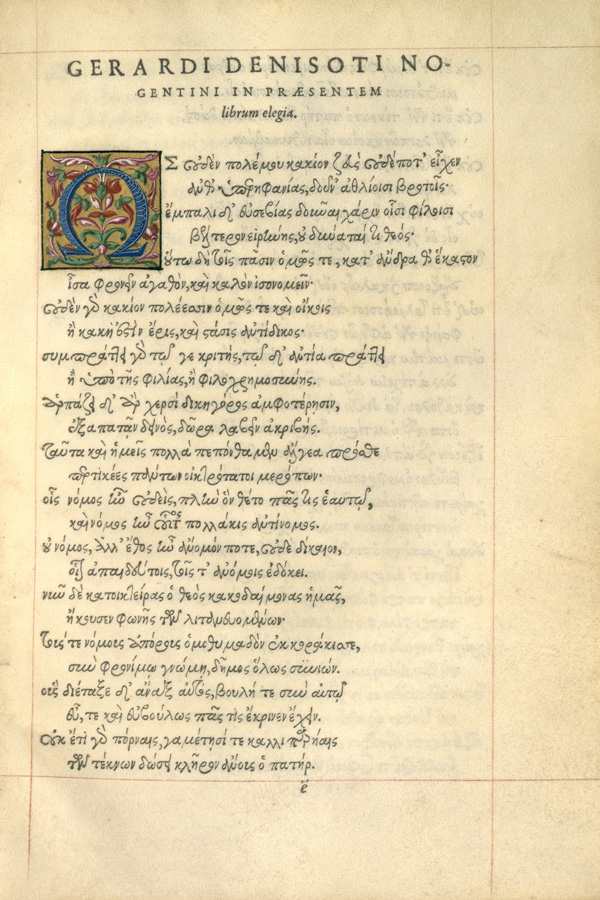 GERARDI DENISOTI NO-
GENTINI IN PRÆSENTEM
librum elegiæ.
ΩΣ οὐδὲν πολέμου κακίον ζεὺς οὐδέποτ' εἶχεν
ἀνθ' ὑπερηφανίας, δοῦν' ἀθλίοισι βροτοῖς·
ἔμπαλι δ' εὐσεβίας χάριν οἷσι φίλοισι
βέλτερον εἰρήνης, οὐ δύναταί τι θεός·
οὕτω δὴ τοῖς πᾶσιν ὁμῶς τε, κατ' ἄνδρα θ' ἕκαστον
ἶσα φρονεῖν ἀγαθὸν, καὶ καλὸν ἰσονομεῖν·
οὐδὲν γὰρ κακίον πολέεσσιν ὁμῶς τε καὶ οἴκοις
ἢ κακή ἐστιν ἔρις, καὶ στάσις ἀντίδικος·
συμπράττει γὰρ τῷ γε κριτής, τῷ δ' ἀντία πράττει
ἢ ὑπὸ τῆς φιλίας, ἢ φιλοχρημοσύνης.
Ἁρπάζει δ' ἂρ χερσὶ δικηγόρος ἀμφοτέρησιν,
ἐξαπατᾶν δεινός, δῶρα λαβεῖν ἀκριβής.
Ταῦτα καὶ ἡμεῖς πολλὰ πεπόνθαμεν ἄλγεα πρόσθε
Πρτικέες πολύτων οἰκτρότατοι μερόπων·
οἷς νόμος ἦν οὐδεὶς, πλὴν ὃν θέτο πᾶς τις ἑαυτῷ,
καὶ νόμος ἦν οὗτος πολλάκις ἀντίνομος.
οὐ νόμος, ἀλλ' ἔθος ἦν ἄνομόν ποτε, οὐδὲ δίκαιον,
ἀπαιδεύτοις, τοῖς τ' ἀνόμοις ἐδόκει.
νῦν δὲ κατοικτείρας ὁ θεὸς κακοδαίμονας ἡμᾶς,
ἤκουσεν φωνῆς τῶν λιτομένων·
Τοῖς τε νόμοις ἀπόροις ὁμοθυμαδὸν
σὺν φρονίμῳ γνώμῃ, δῆμος ὅλως συνιών.
οὓς διέταξε δ' ἄναξ αὐτὸς, βουλή τε σὺν αὐτῷ
εὖ, τε καὶ εὐβούλως πᾶς τὶς ἔκρινεν ἔχειν.
Οὐκ ἔτι γὰρ πόρναις, γαμέτησί τε
τῶν τέκνων δώσει κλῆρον ἄνοις ὁ πατήρ.
e